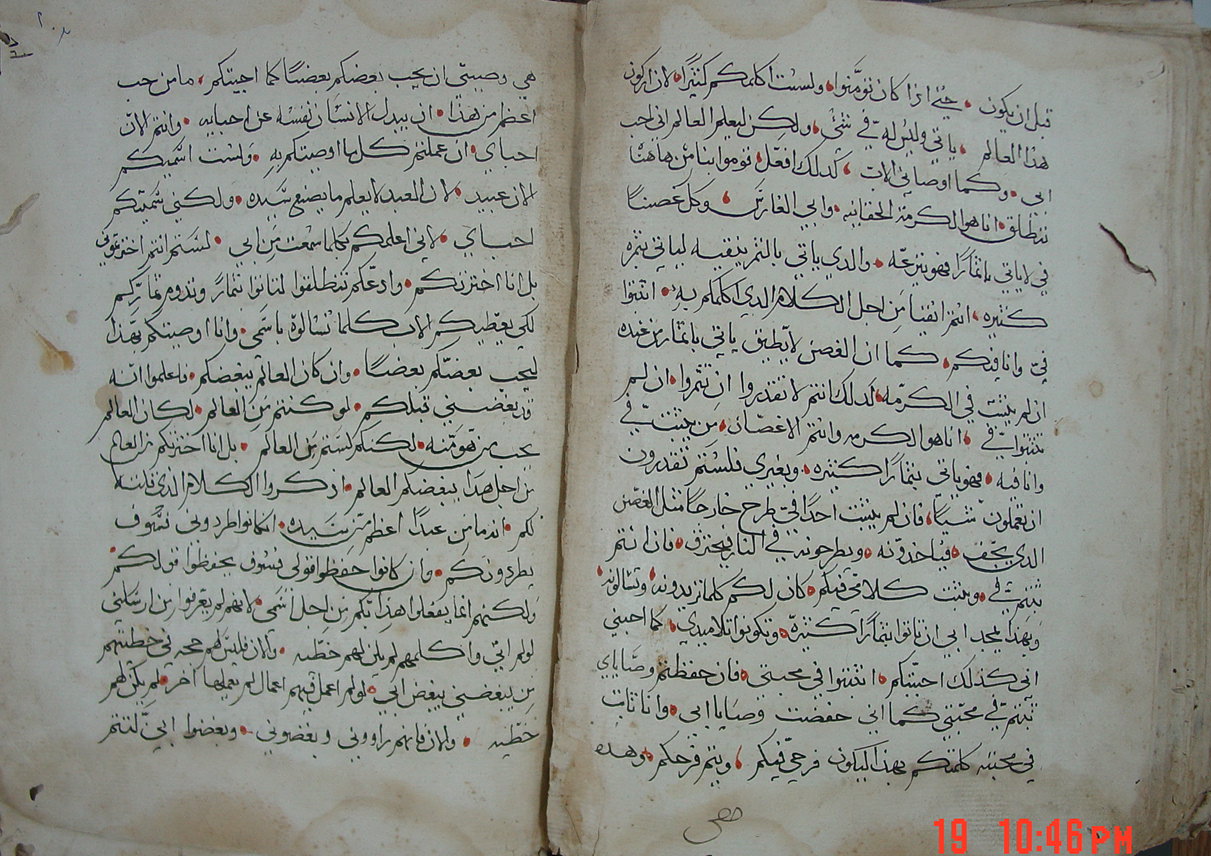 قبل ان يكون حتى اذا كان تومنوا ولست اكلمكم كثيرا لان اركون
هذا العالم ياتي وليس له في شي ولكن ليعلم العالم اني احب
ابي وكما اوصاني الاب كدلك افعل قوموا بنا من هاهنا
ننطلق انا هو الكرمة الحقانيه وابي الغارس وكل غصنا
في لا ياتي باثمارا فهو ينزعه والدي ياتي بالثمر ينقيه لياتي بثمره
كثيره انتم انقيا من اجل الكلام الدي اكلمكم به اثبتوا
في وانا فيكم كما ان الغصن لا يطيق ياتي باثمار من عنده
ان لم يثبت في الكرمه لدلك انتم لا تقدروا ان تثمروا ان لم
تثبتوا في انا هو الكرمه وانتم الاغصان من يثبت في
وانا فيه فهو ياتي بثمارا كثيره وبغيري فلستم تقدرون
ان تعملون شيا فان لم يثبت احدا في طرح خارجا مثل الغصن
الدي يجف فياخدونه ويطرحونه في النار يحترق فان انتم
ثبتم في ويثبت كلامي فيكم كان لكم كلما تريدونه وتسالونه
وبهدا يمجد ابي ان تاتوا بثمارا كثيرة وتكونوا تلاميدي كما احبني
ابي كدلك احببتكم اثبتوا في محبتي فان حفظتم وصاياي
ثبتم في محبتي كما اني حفضت وصايا ابي وانا ثابت
في محبته كلمتكم بهدا ليكون فرحي فيكم ويتم فرحكم وهده
هي وصيتي ان يحب بعضكم بعضا كما احببتكم ما من حب
اعظم من هدا ان يبدل الانسان نفسه عن احبايه وانتم الان
احباي ان عملتم كل ما اوصيتكم به ولست اسميكم
الان عبيد لان العبد لا يعلم ما يصنع سيده ولكني سميتكم
احباي لاني اعلمكم بكلما سمعت من ابي لستم انتم اخترتوني
بل انا اخترتكم وادعكم تنطلقوا لتاتوا بثمار وتدوم ثماركم
لكي يعطيكم الاب كلما تسالوه باسمي وانا اوصيتكم بهدا
ليحب بعضكم بعضا وان كان العالم يبغضكم فاعلموا انه
قد بغضني قبلكم لو كنتم من العالم لكان العالم
يحب من هو منه لكنكم لستم من العالم بل انا اخترتكم من العالم
من اجل هدا يبغضكم العالم ادكروا الكلام الدي قلته
لكم انه ما من عبدا اعظم من سيده ان كانوا طردوني فسوف
يطردونكم وان كانوا حفظوا قولي فسوف يحفظوا قولكم
ولكنهم انما يفعلوا هدا بكم من اجل اسمي لانهم لم يعرفوا من ارسلني
لو لم اتي واكلمهم لم يكن لهم خطيه والان فليس لهم حجه في خطيتهم
من يبغضني يبغض ابي لو لم اعمل فيهم اعمال لم يعملها اخر لم يكن لهم
خطيه والان فانهم راووني وبغضوني وبغضوا ابي لتتم
19 10:46 PM